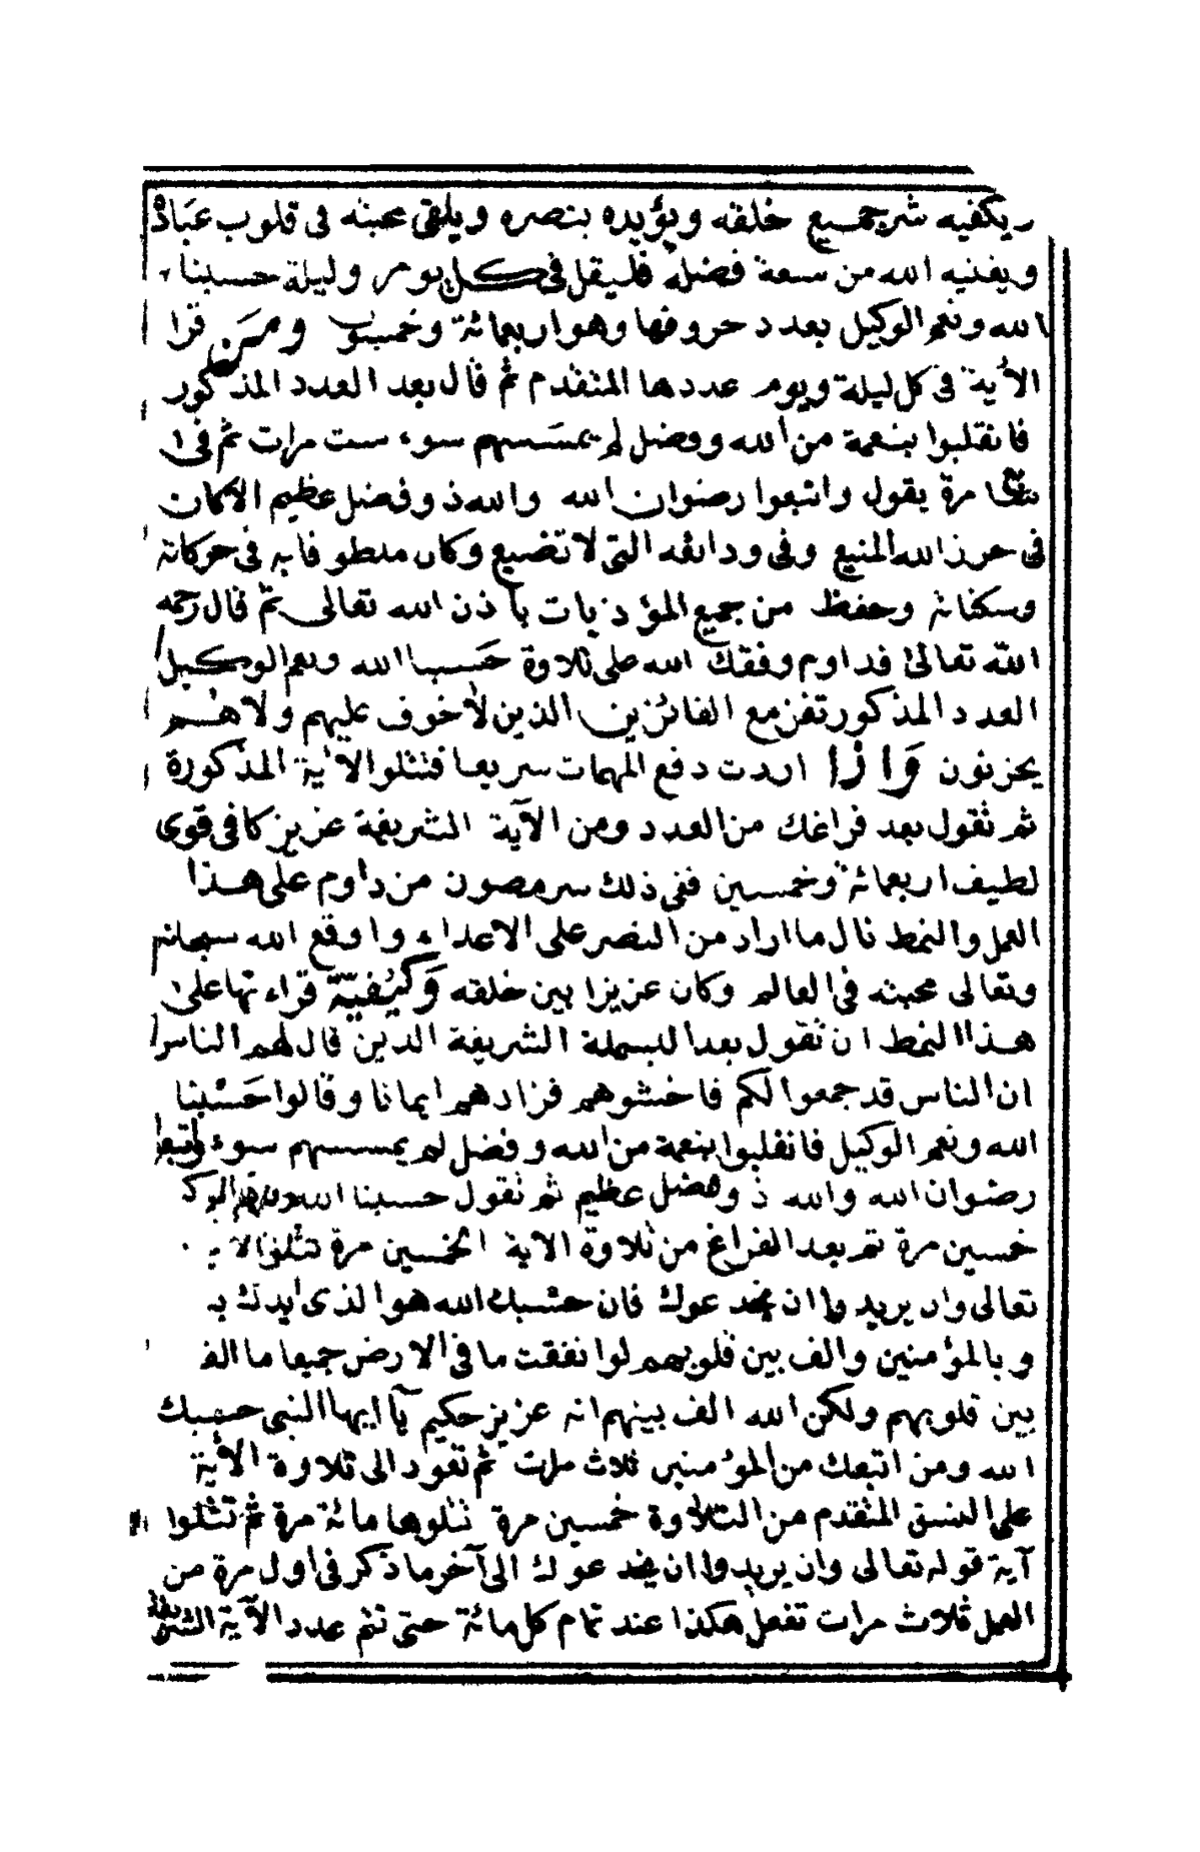 ويكفيه شر جميع خلقه ويؤيده بنصره ويلقى محبته فى قلوب عباده
ويغنيه الله من سعة فضله فليقل فى كل يوم وليلة حسبنا
الله ونعم الوكيل بعدد حروفها وهو اربعمائة وخمسون ومن قرا
الأية فى كل ليلة ويوم عددها المتقدم ثم قال بعد العدد المذكور
فانقلبوا بنعمة من الله وفضل لم يمسسهم سوء ست مرات ثم فى ا
مرة يقول واتبعوا رضوان الله والله ذو فضل عظيم الاكان
فى حرز الله المنيع وفى ودائعه التى لا تضيع وكان ملطوفا به فى حركاته
وسكناته وحفظ من جميع المؤذيات باذن الله تعالى ثم قال رحمه
الله تعالى فداوم وفقك الله على تلاوة حسبنا الله ونعم الوكيل
العدد المذكور تفز مع الفائزين الذين لا خوف عليهم ولا هم
يحزنون وَاذا اردت دفع المهمات سريعا فتتلوا الاية المذكورة
ثم تقول بعد فراغك من العدد ومن الآية الشريفة عزيز كافى قوى
لطيف اربعمائة وخمسين ففى ذلك سر مصون من داوم على هذا
العمل والنمط نال ما اراد من النصر على الاعداء واوقع الله سبحانه
وتعالى محبته فى العالم وكان عزيزا بين خلقه وَكيفية قراءتها على
هذا النمط ان تقول بعد البسملة الشريفة الذين قال لهم الناس
ان الناس قد جمعوا لكم فاخشوهم فزادهم ايمانا وقالوا حَسْبنا
الله ونعم الوكيل فانقلبوا بنعمة من الله وفضل لم يمسسهم سوء واتبعوا
رضوان الله والله ذو فضل عظيم ثم تقول حسبنا الله ونعم الوكـ
خمسين مرة ثم بعد الفراغ من تلاوة الاية الخمسين مرة تتلو الاية
تعالى وان يريدوا ان يخدعوك فان حسبك الله هو الذى ايدك به
وبالمؤمنين والف بين قلوبهم لو انفقت ما فى الارض جميعا ما الف
بين قلوبهم ولكن الله الف بينهم انه عزيز حكيم يآ ايها النبى حسبك
الله ومن اتبعك من المؤمنين ثلاث مرات ثم تعود الى تلاوة الأية
على النسق المتقدم من التلاوة خمسين مرة تتلوها مائة مرة ثم تتلوا
آية قوله تعالى وان يريدوا ان يخدعوك الى آخر ما ذكر فى اول مرة من
العمل ثلاث مرات تفعل هكذا عند تمام كل مائة حتى تتم عدد الآية الشريفة